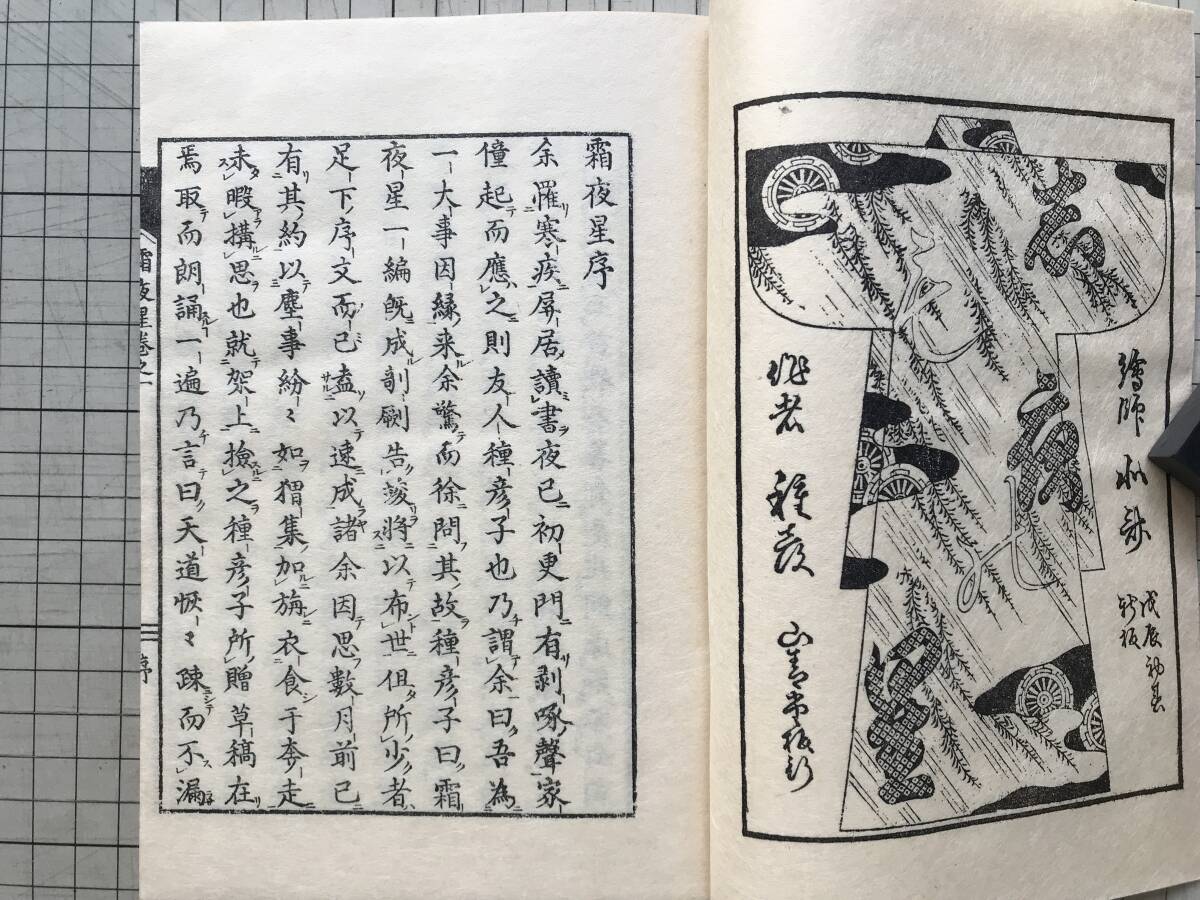 繪師 北斎
戊辰初春
新板
作者 種彦 山青堂板行
霜夜星序
余罹寒疾屏居讀書夜已初更門有剥啄聲家
僮起而應之則友人種彦子也乃謂余曰吾為
一大事因縁来余驚而徐問其故種彦子曰霜
夜星一編既成剞劂告竣將以布世但所少者
足下序文而已盍以速成諸余因思數月前已
有其約以塵事紛〻如猬集加旃衣食于奔走
未暇搆思也就架上撿之種彦子所贈草稿在
焉取而朗誦一遍乃言曰天道恢〻疎而不漏
霜夜星巻之一
序